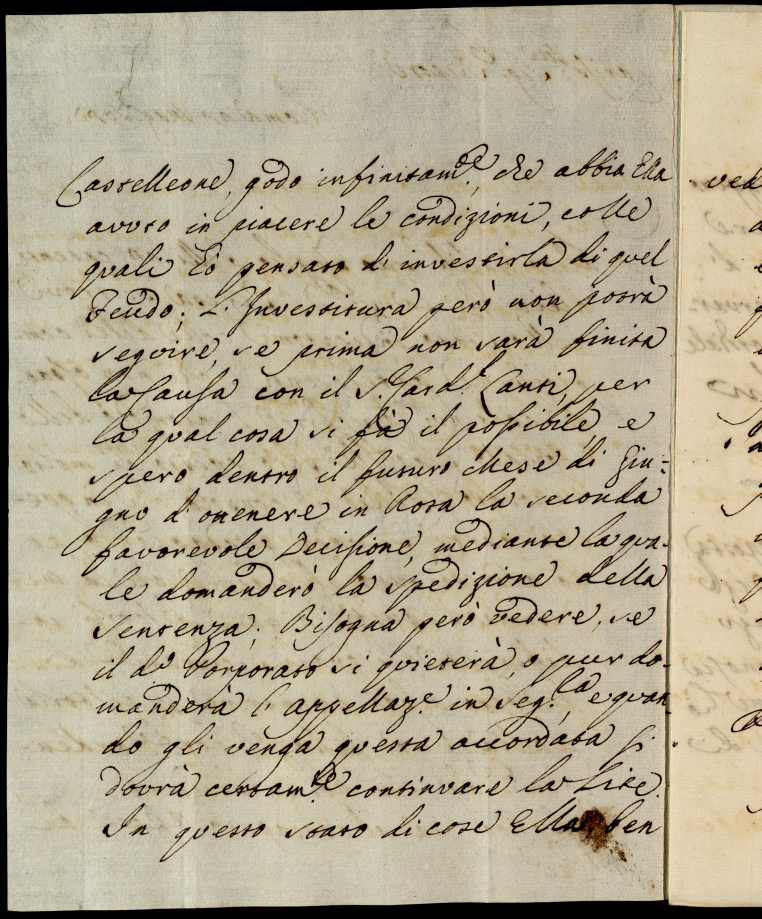 Castelleone, godo infinitam.te, che abbia Ella
avuto in piacere le condizioni, colle
quali hò pensato d'investirla di quel
Feudo; L'Investitura però non potrà
seguire, se prima non sarà finita
la Causa con il S. Card.l Canti, per
la qual cosa si fà il possibile, e
spero dentro il futuro Mese di Giu-
gno d'ottenere in Rota la seconda
favorevole Decisione, mediante la qua-
le domanderò la spedizione della
sentenza; Bisogna però vedere, se
il d.o Porporato si quieterà, o pur do-
manderà l'appellaz.e in Seg.la, e quan-
do gli venga questa accordata si
dovrà certam.te continuare la Lite.
In questo stato di cose Ella ben
ved